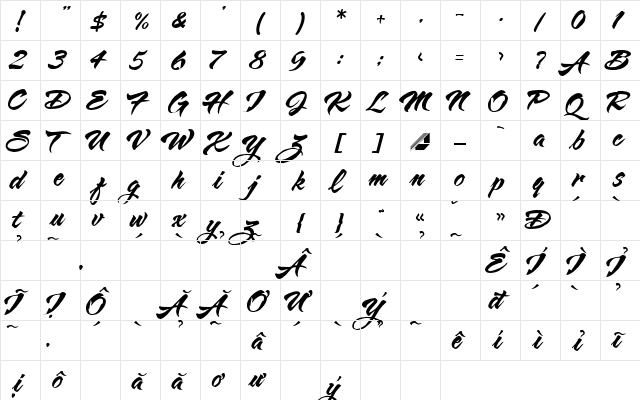 ! " $ % & ' ( ) * + , - . / 0 1
2 3 4 5 6 7 8 9 : ; ‹ = › ? A B
C D E F G H I J K L M N O P Q R
S T U V W X Y Z [ ] _ a b c
d e f g h i j k l m n o p q r s
t u v w x y z { } « » Đ
Â Ê Í Ì Ỉ
Ĩ Ị Ô Ă Ă Ơ Ư Ý đ
â ê í ì ỉ ĩ
ị ô ă ă ơ ư ý